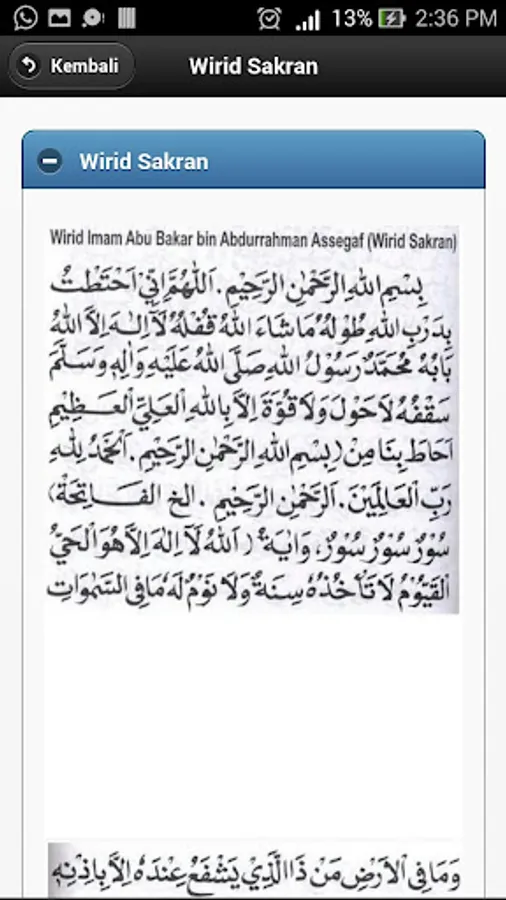 13% 2:36 PM
Kembali
Wirid Sakran
Wirid Sakran
Wirid Imam Abu Bakar bin Abdurrahman Assegaf (Wirid Sakran)
بِسْمِ اللهِ الرَّحْمٰنِ الرَّحِيْمِ. اَللّٰهُمَّ اِنِّي اَحْتَطْتُ
بِدَرْبِ اللهِ طُوْلُهُ مَاشَاءَ اللهُ قُفْلُهُ لَآاِلٰهَ اِلَّا اللهُ
بَابُهُ مُحَمَّدٌ رَسُوْلُ اللهِ صَلَّى اللهُ عَلَيْهِ وَاٰلِهٖ وَسَلَّمَ
سَقْفُهُ لَاحَوْلَ وَلَا قُوَّةَ اِلَّا بِاللهِ الْعَلِيِّ الْعَظِيْمِ
اَحَاطَ بِنَا مِنْ (بِسْمِ اللهِ الرَّحْمٰنِ الرَّحِيْمِ. اَلْحَمْدُ لِلّٰهِ
رَبِّ الْعَالَمِيْنَ. اَلرَّحْمٰنِ الرَّحِيْمِ. الخ الفَاتِحَةْ)
سُوْرٌ سُوْرٌ سُوْرٌ، وَاٰيَةُ (اَللهُ لَآ اِلٰهَ اِلَّا هُوَ الْحَيُّ
الْقَيُّوْمُ لَا تَأْخُذُهُ سِنَةٌ وَلَا نَوْمٌ لَهُ مَا فِى السَّمٰوَاتِ
وَمَا فِى الْاَرْضِ مَنْ ذَا الَّذِيْ يَشْفَعُ عِنْدَهُ اِلَّا بِاِذْنِهٖ